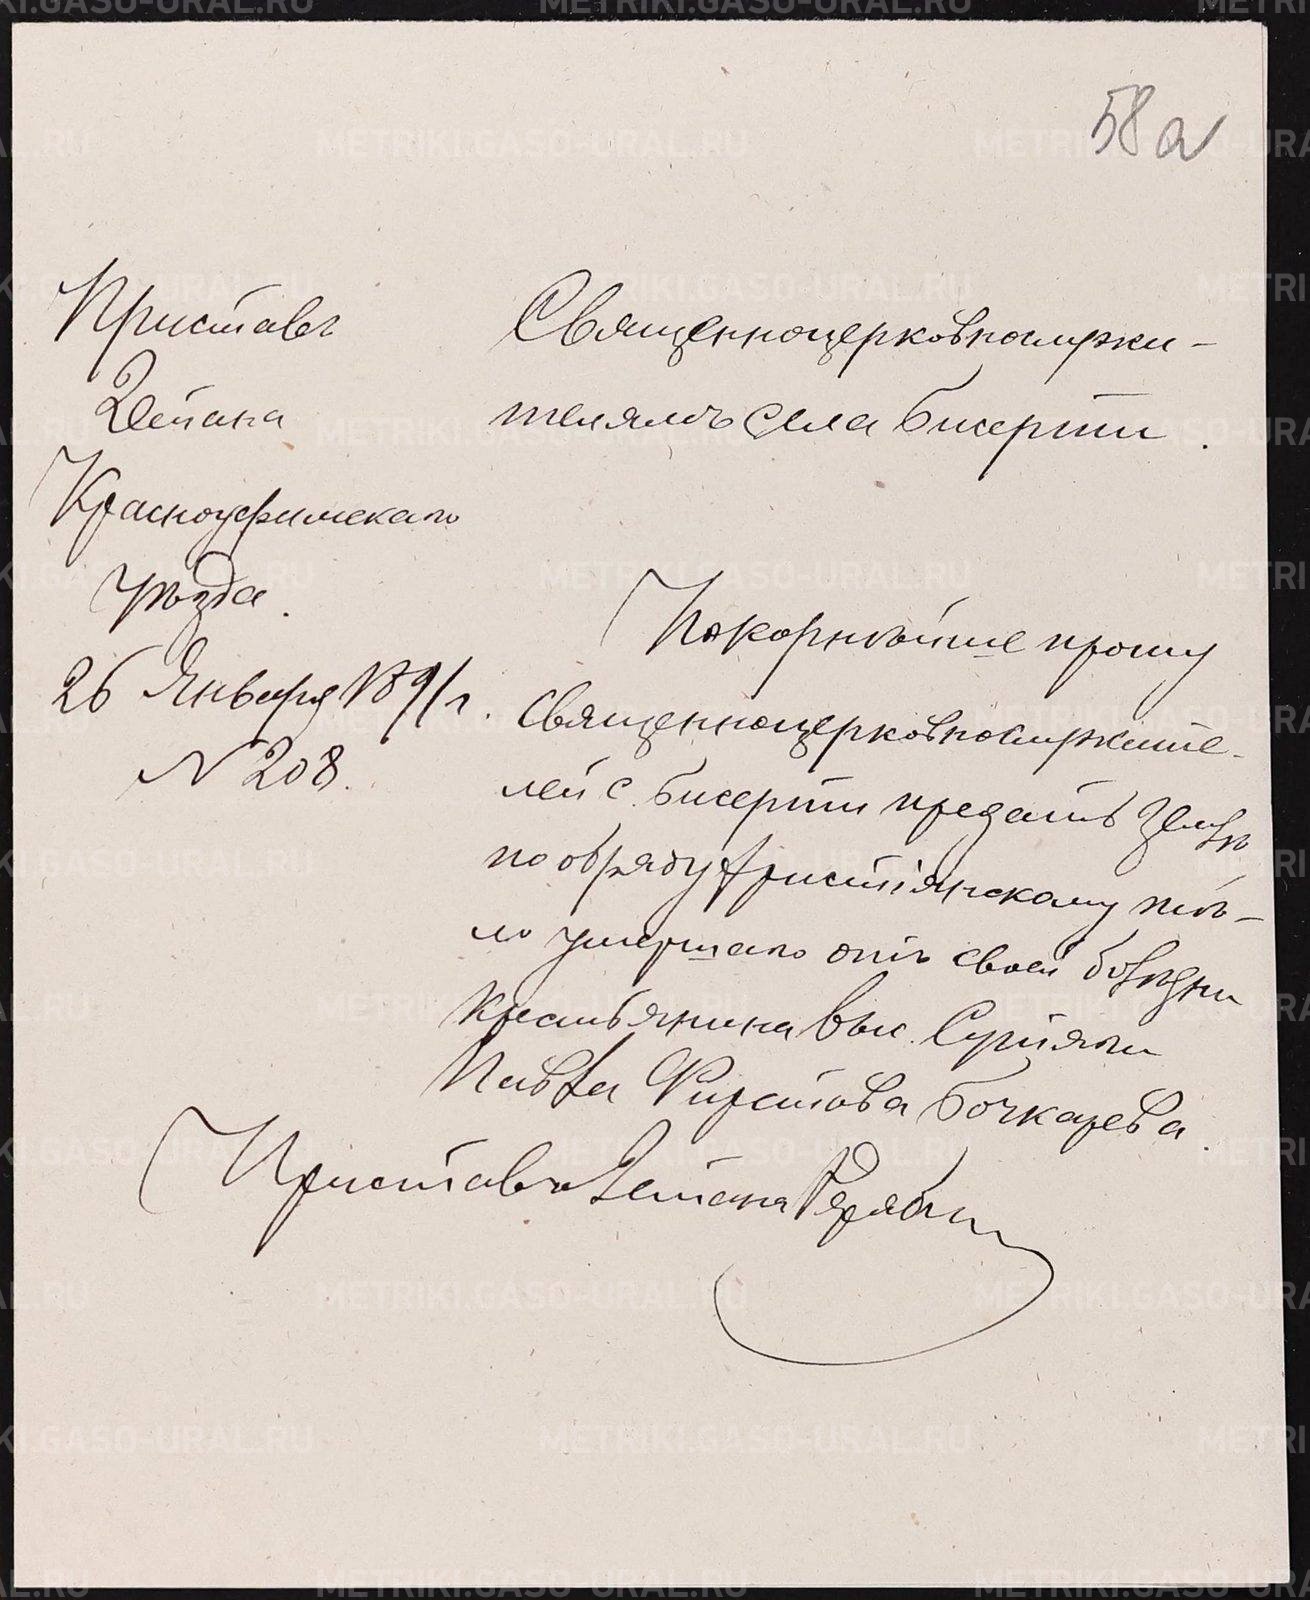 58а
Приставъ
2 Стана
Красноуфимскаго
уѣзда.
26 Января 1891 г.
№ 208.
Священноцерковнослужи-
телямъ села Бисерти.
Покорнѣйше прошу
Священноцерковнослужите-
лей с. Бисерти предать землѣ
по обряду христіянскому тѣ-
ло умершаго отъ своей болѣзни
крестьянина
Павла Фирстова Бочкарева.
Приставъ 2 Стана
METRIKI.GASO-URAL.RU